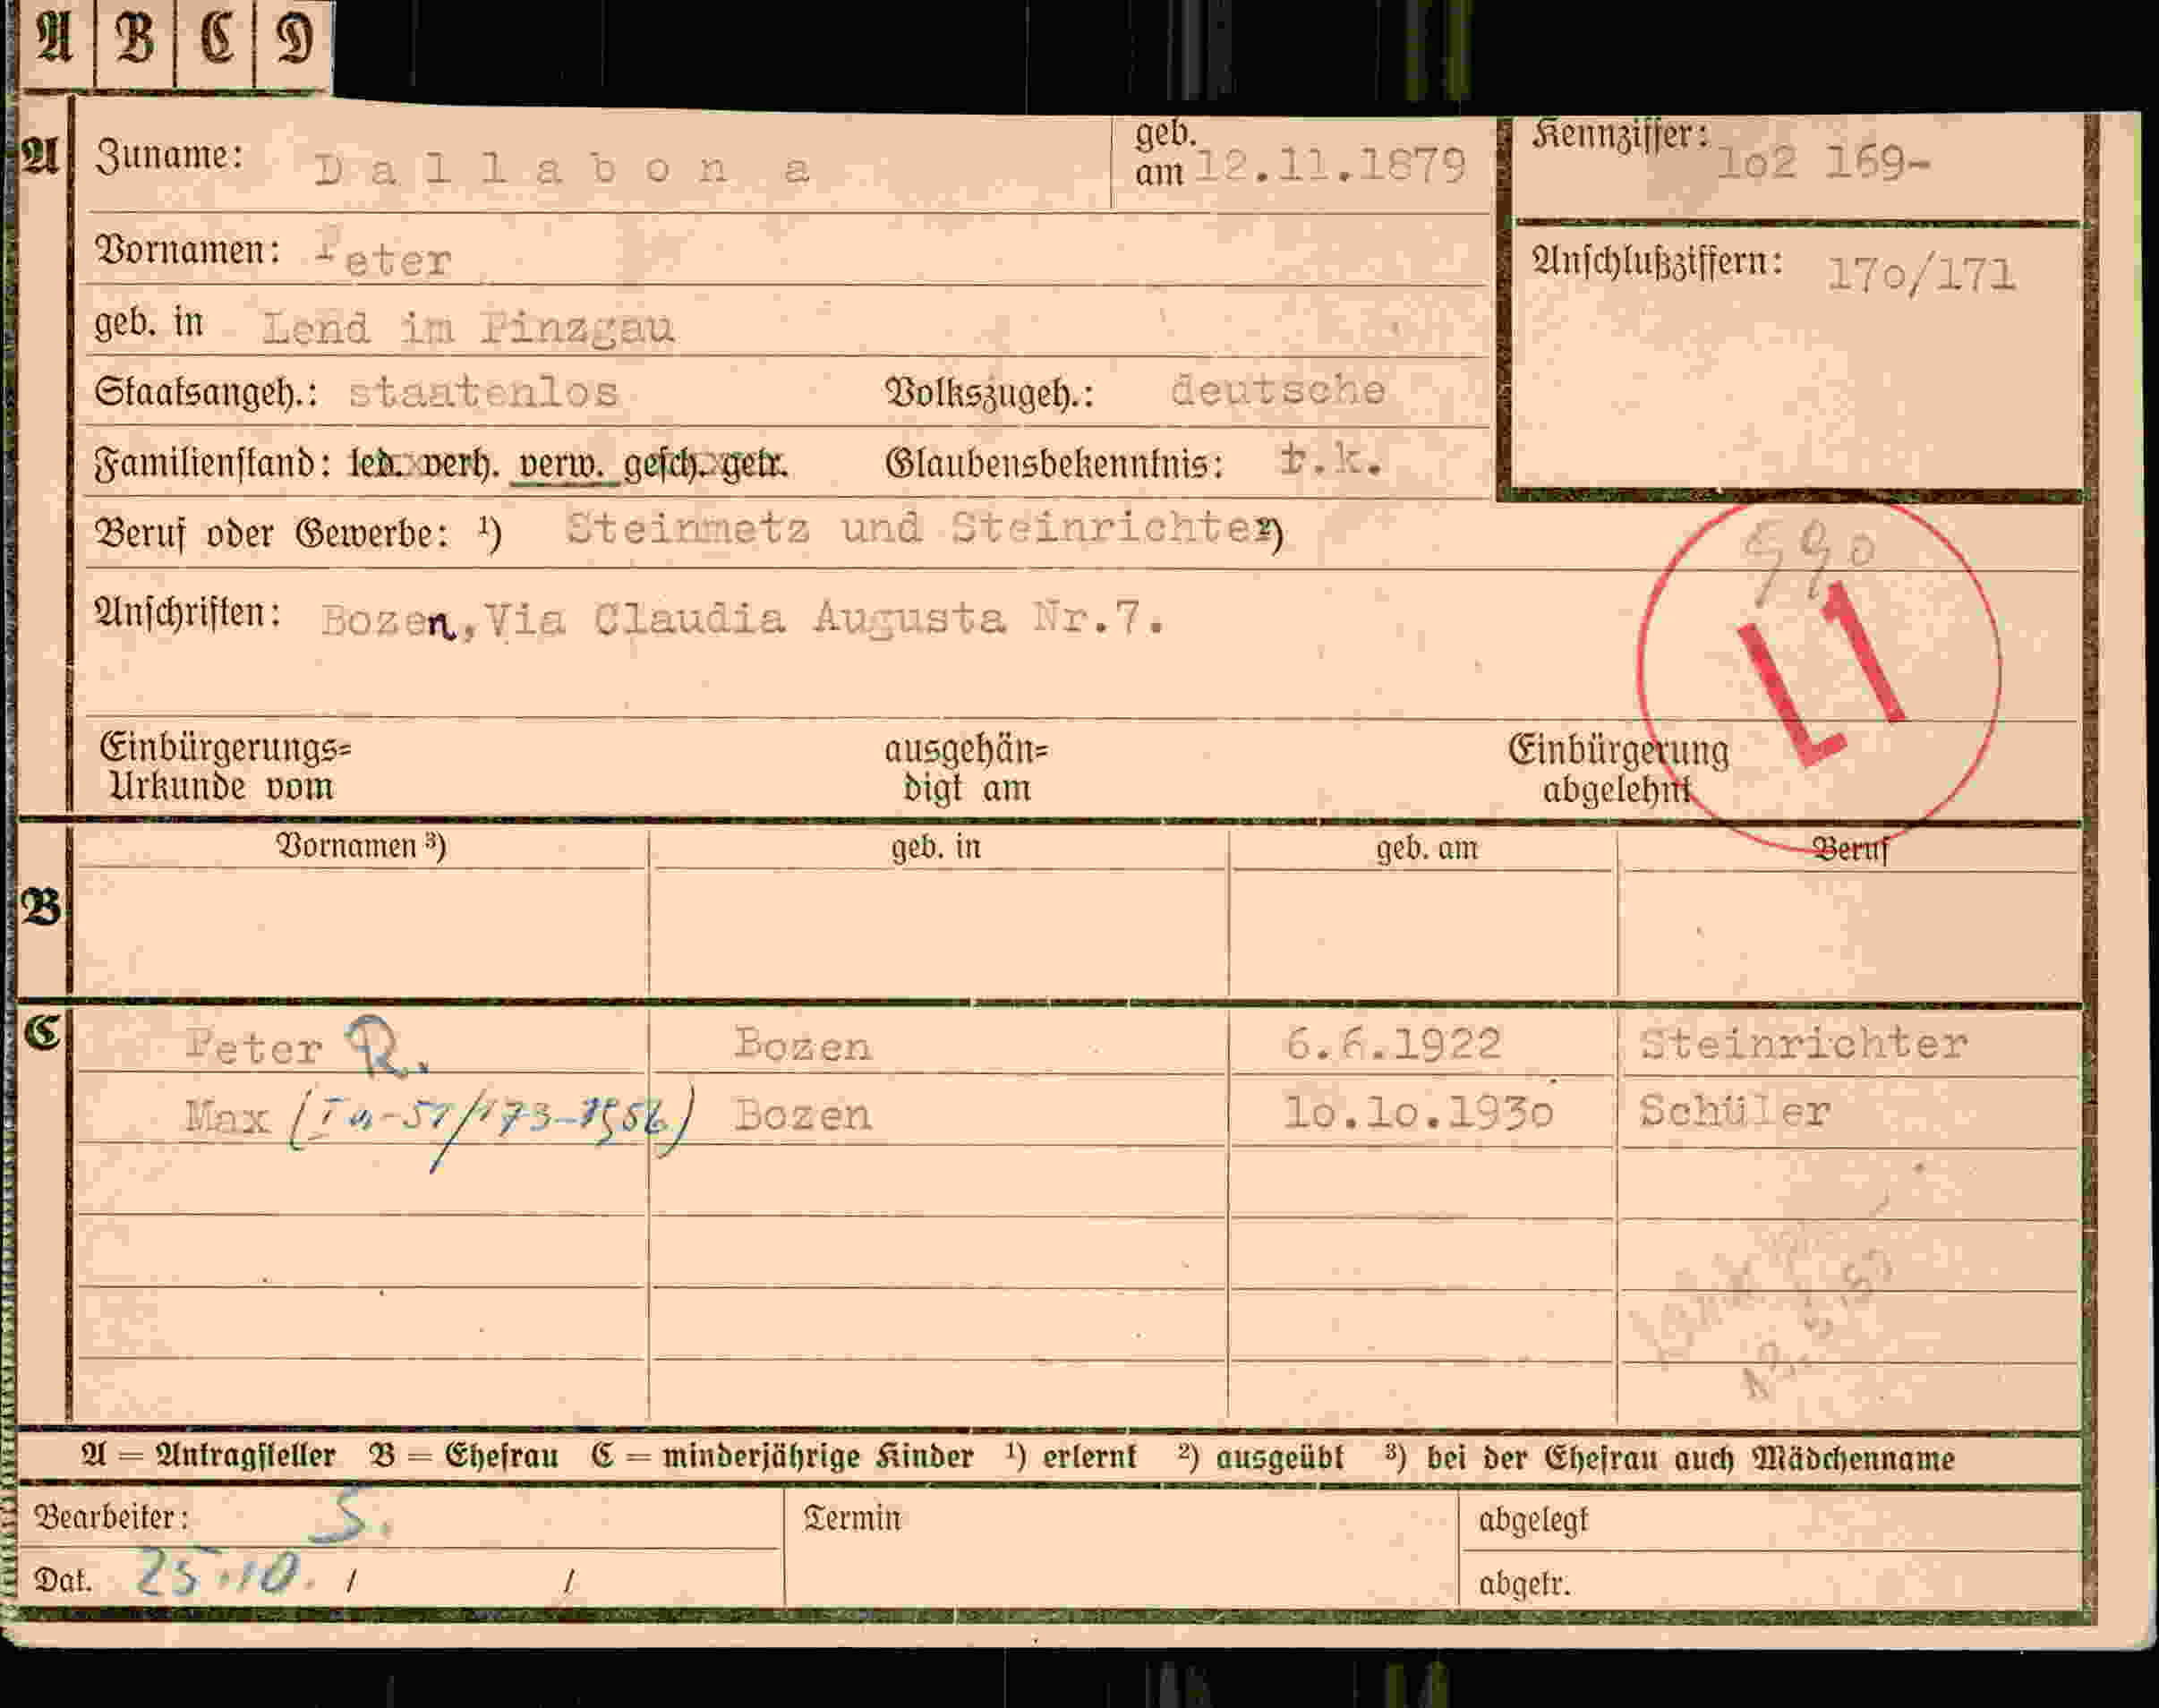 A B C D
A Zuname: Dallabona geb. am 12.11.1879 Kennziffer: 1o2 169-
Vornamen: Peter Anschlußziffern: 17o/171
geb. in Lend im Pinzgau
Staatsangeh.: staatenlos Volkszugeh.: deutsche
Familienstand: led. verh. verw. gesch. getr. Glaubensbekenntnis: r.k.
Beruf oder Gewerbe: ¹) Steinmetz und Steinrichter ²)
990
Anschriften: Bozen, Via Claudia Augusta Nr.7.
L1
Einbürgerungs= ausgehän= Einbürgerung
Urkunde vom digt am abgelehnt
B Vornamen ³) geb. in geb. am Beruf
C Peter R. Bozen 6.6.1922 Steinrichter
Max Bozen 1o.1o.193o Schüler
A = Antragsteller B = Ehefrau C = minderjährige Kinder ¹) erlernt ²) ausgeübt ³) bei der Ehefrau auch Mädchenname
Bearbeiter: S. Termin abgelegt
Dat. 25.10. / / abgetr.